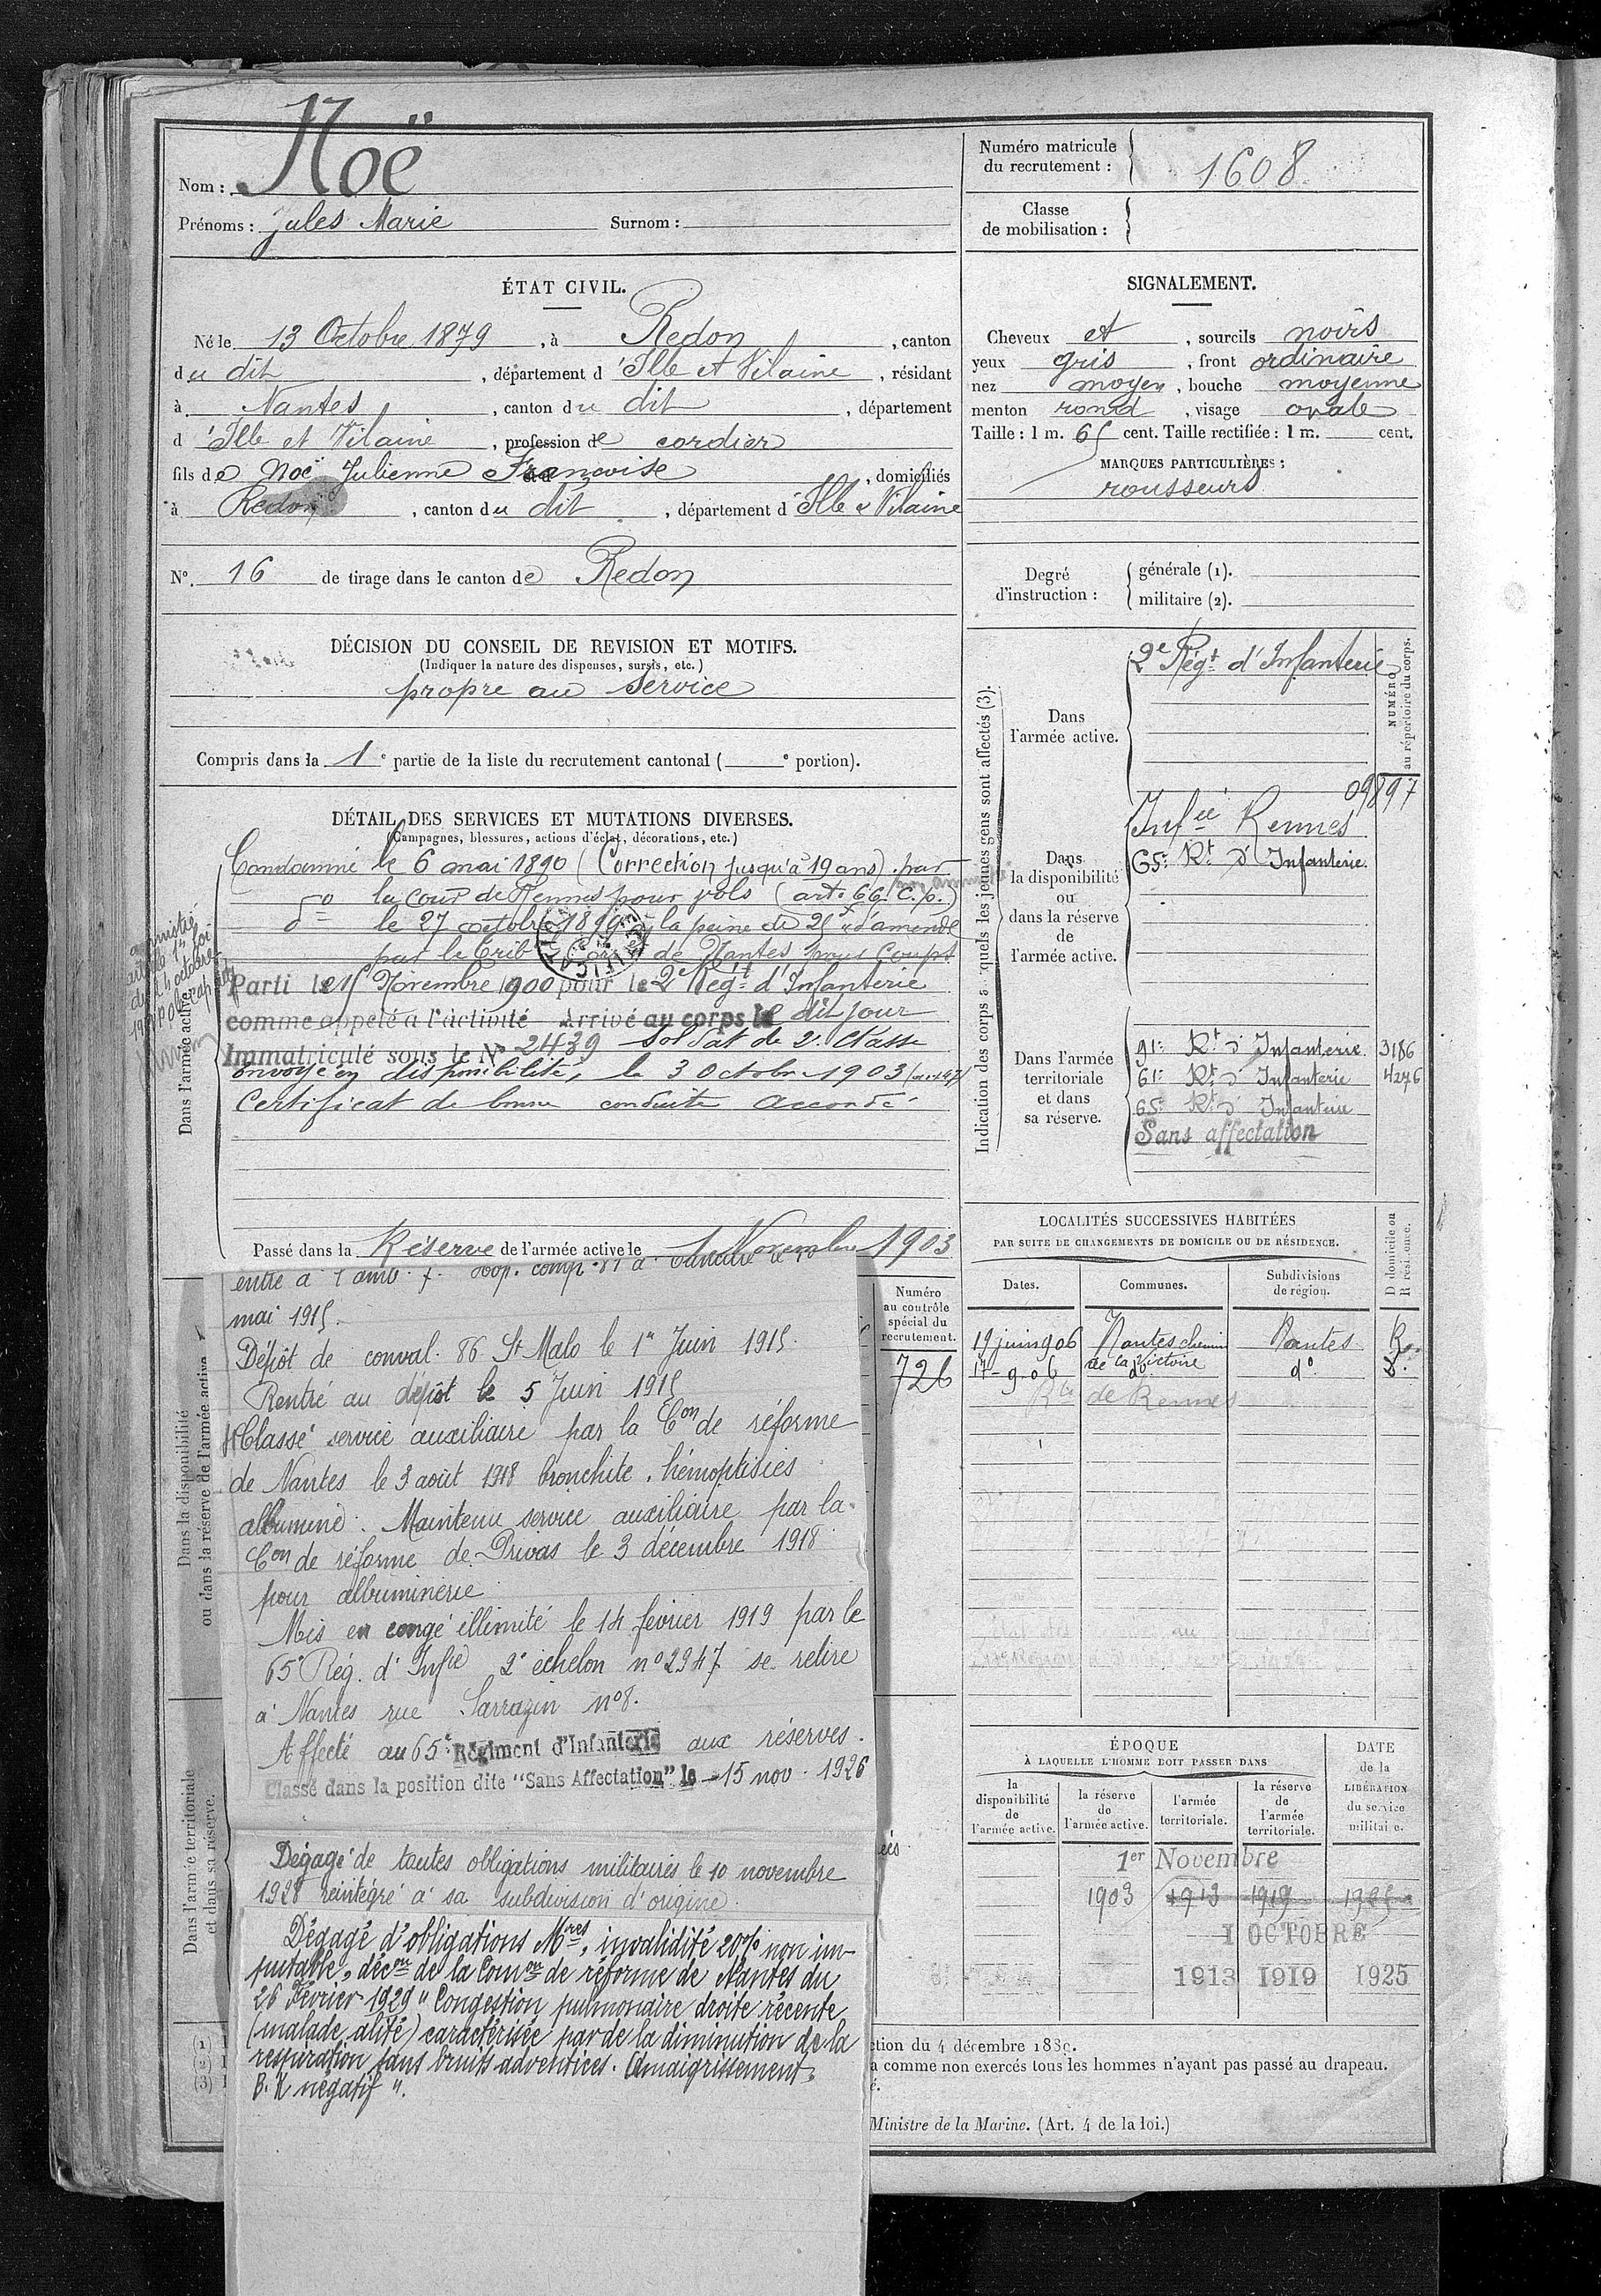 Nom : Noë
Prénoms : Jules Marie Surnom :
Numéro matricule
du recrutement : 1608
Classe
de mobilisation :
ÉTAT CIVIL.
Né le 13 Octobre 1879, à Redon, canton
du dit, département d'Ille et Vilaine, résidant
à Nantes, canton du dit, département
d'Ille et Vilaine, profession de cordier
fils de Noë Julienne Françoise, domiciliés
à Redon, canton du dit, département d'Ille & Vilaine
N° 16 de tirage dans le canton de Redon
SIGNALEMENT.
Cheveux et, sourcils noirs
yeux gris, front ordinaire
nez moyen, bouche moyenne
menton rond, visage ovale
Taille : 1 m. 65 cent. Taille rectifiée : 1 m. cent.
MARQUES PARTICULIÈRES :
rousseurs
Degré
d'instruction :
générale (1).
militaire (2).
DÉCISION DU CONSEIL DE REVISION ET MOTIFS.
(Indiquer la nature des dispenses, sursis, etc.)
propre au service
Compris dans la 1e partie de la liste du recrutement cantonal ( e portion).
DÉTAIL DES SERVICES ET MUTATIONS DIVERSES.
(Campagnes, blessures, actions d'éclat, décorations, etc.)
Condamné le 6 mai 1890 (Correction jusqu'à 19 ans) par
la cour de Rennes pour vols (art. 66 C. p.)
do le 27 octobre 1899 à la peine de 25 f d'amende
par le Trib Cor de Nantes pour Coups
Parti le 15 Novembre 1900 pour le 2e Régt d'Infanterie
comme appelé à l'activité Arrivé au corps le dit jour
Immatriculé sous le No 2439 Soldat de 2e Classe
envoyé en disponibilité, le 3 Octobre 1903
Certificat de bonne conduite accordé
Dans l'armée active.
Passé dans la Réserve de l'armée active le 1 Novembre 1903
Indication des corps auxquels les jeunes gens sont affectés (3).
Dans
l'armée active.
2e Régt d'Infanterie
NUMÉRO
au répertoire du corps.
09897
Dans
la disponibilité
ou
dans la réserve
de
l'armée active.
Infie Rennes
65e Rt d'Infanterie.
Dans l'armée
territoriale
et dans
sa réserve.
91e Rt d'Infanterie 3186
61e Rt d'Infanterie 4276
65e Rt d'Infanterie
Sans affectation
LOCALITÉS SUCCESSIVES HABITÉES
PAR SUITE DE CHANGEMENTS DE DOMICILE OU DE RÉSIDENCE.
Dates. Communes. Subdivisions
de région.
D domicile ou
R résidence.
19 juin 906 Nantes chemin Nantes R.
de la Victoire
17-9-06 do do D.
Rte de Rennes
Numéro
au contrôle
spécial du
recrutement.
726
Dans la disponibilité
ou dans la réserve de l'armée active
mai 1915.
Dépôt de conval. 86 St Malo le 1er Juin 1915.
Rentré au dépôt le 5 Juin 1915
Classé service auxiliaire par la Con de réforme
de Nantes le 3 août 1918 bronchite, hémoptisies
albumine. Maintenu service auxiliaire par la
Con de réforme de Privas le 3 décembre 1918
pour albuminerie
Mis en congé illimité le 14 février 1919 par le
65e Rég. d'Infie 2e échelon no 2947 se retire
à Nantes rue Sarrazin no 8.
Affecté au 65e Régiment d'Infanterie aux réserves.
Classé dans la position dite "Sans Affectation" le 15 nov. 1926
Dans l'armée territoriale
et dans sa réserve.
Dégagé de toutes obligations militaires le 10 novembre
1928 réintégré à sa subdivision d'origine
Dégagé d'obligations Mres, invalidité 20% non im-
putable, décon de la Comon de réforme de Nantes du
26 Février 1929 "Congestion pulmonaire droite récente
(malade alité) caractérisée par de la diminution de la
respiration sans bruits adventices. Amaigrissement.
B. K négatif".
ÉPOQUE
À LAQUELLE L'HOMME DOIT PASSER DANS
la
disponibilité
de
l'armée active.
la réserve
de
l'armée active.
l'armée
territoriale.
la réserve
de
l'armée
territoriale.
DATE
de la
LIBÉRATION
du service
militaire.
1er Novembre
1903 1913 1919 1925
1 OCTOBRE
1913 1919 1925
ction du 4 décembre 1889.
a comme non exercés tous les hommes n'ayant pas passé au drapeau.
Ministre de la Marine. (Art. 4 de la loi.)